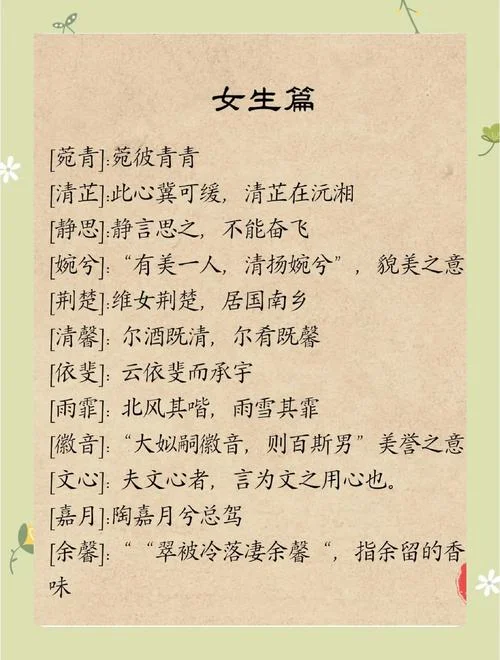 女生篇
[菀青]:菀彼青青
[清芷]:此心冀可缓，清芷在沅湘
[静思]:静言思之，不能奋飞
[婉兮]:“有美一人，清扬婉兮”，貌美之意
[荆楚]:维女荆楚，居国南乡
[清馨]：尔酒既清，尔肴既馨
[依斐]：云依斐而承宇
[雨霏]：北风其喈，雨雪其霏
[徽音]:“大姒嗣徽音，则百斯男”美誉之意
[文心]：夫文心者，言为文之用心也。
[嘉月]:陶嘉月兮总驾
[余馨]：““翠被冷落凄余馨“，指余留的香
味